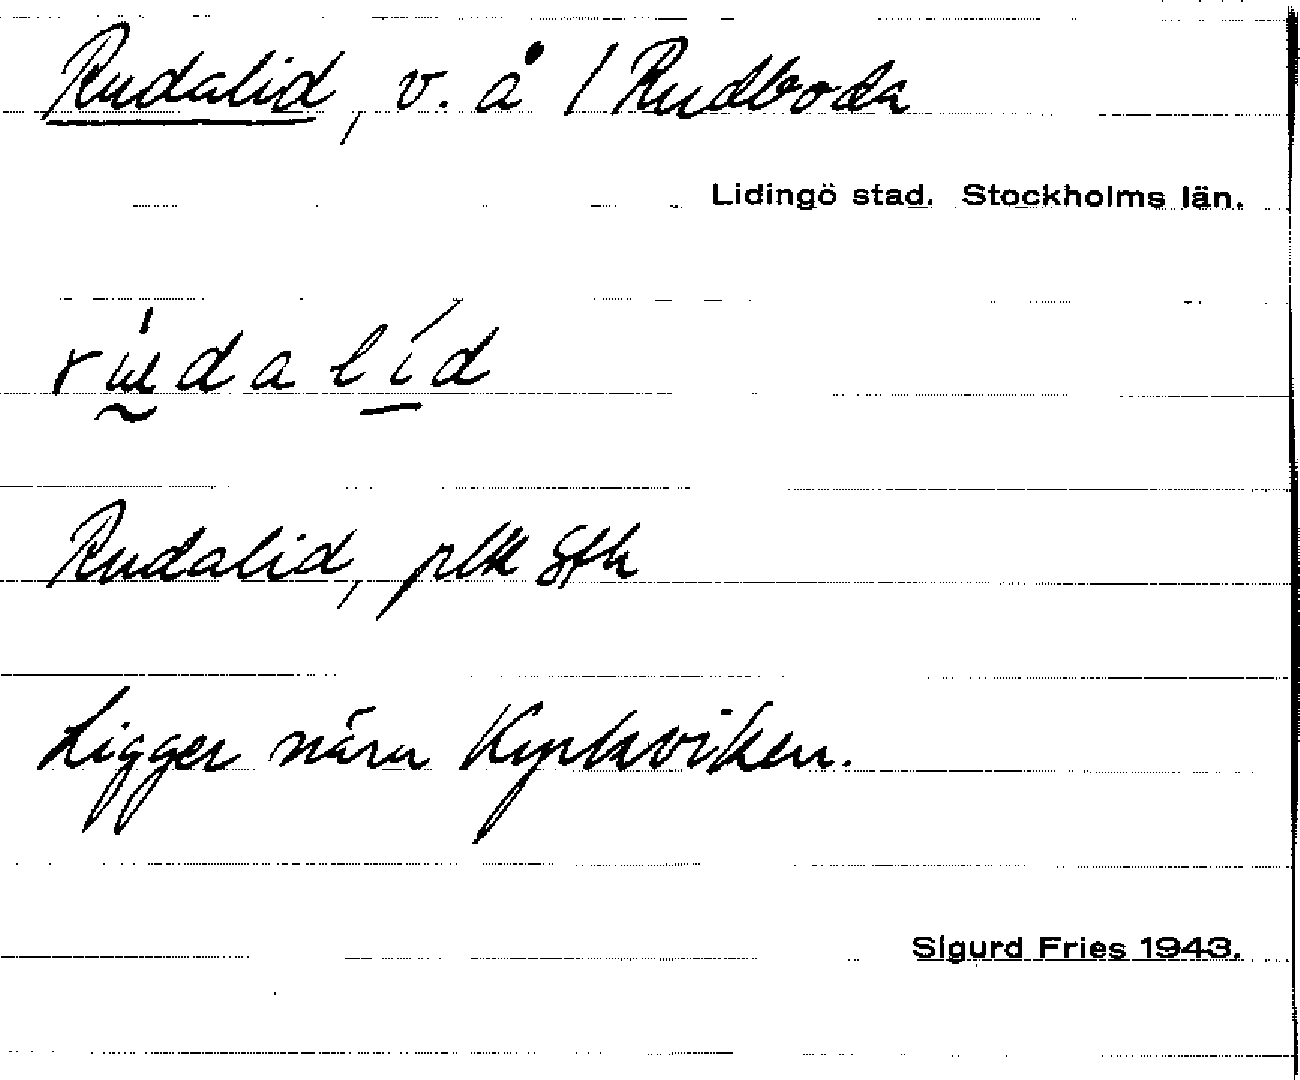 Rudalid, v. å / Rudboda
Lidingö stad. Stockholms län.
rúdalíd
Rudalid, plk Sth
Ligger nära Kyrkviken.
Sigurd Fries 1943.